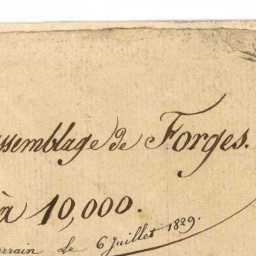 ssemblage de Forges.
à 10,000.
rrain le 6 Juillet 1829.